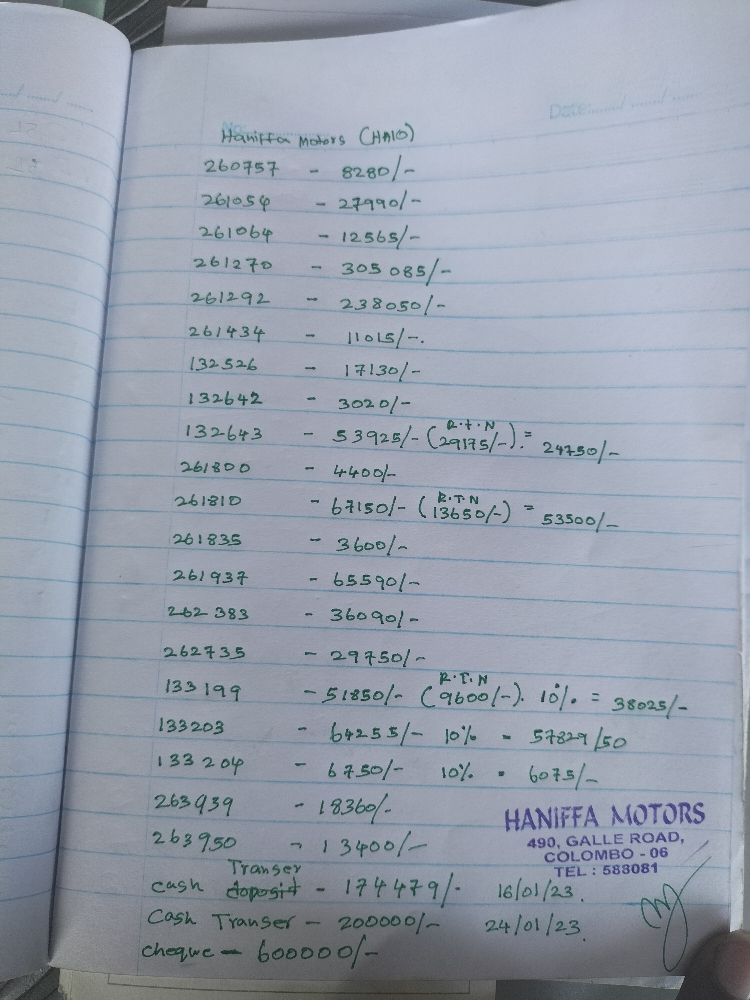 No.
Date:
Haniffa Motors (HA10)
260757 - 8280/-
261054 - 27990/-
261064 - 12565/-
261270 - 305085/-
261292 - 238050/-
261434 - 11015/-.
132526 - 17130/-
132642 - 3020/-
132643 - 53925/- (R.T.N 29175/-). = 24750/-
261800 - 4400/-
261810 - 67150/- (R.T.N 13650/-) = 53500/-
261835 - 3600/-
261937 - 65590/-
262383 - 36090/-
262735 - 29750/-
133199 - 51850/- (R.T.N 9600/-). 10% = 38025/-
133203 - 64255/- 10% - 57829/50
133204 - 6750/- 10% - 6075/-
263939 - 18360/-
263950 - 13400/-
cash Transer deposit - 174479/- 16/01/23.
Cash Transer - 200000/- 24/01/23.
cheque - 600000/-
HANIFFA MOTORS
490, GALLE ROAD,
COLOMBO - 06
TEL : 588081